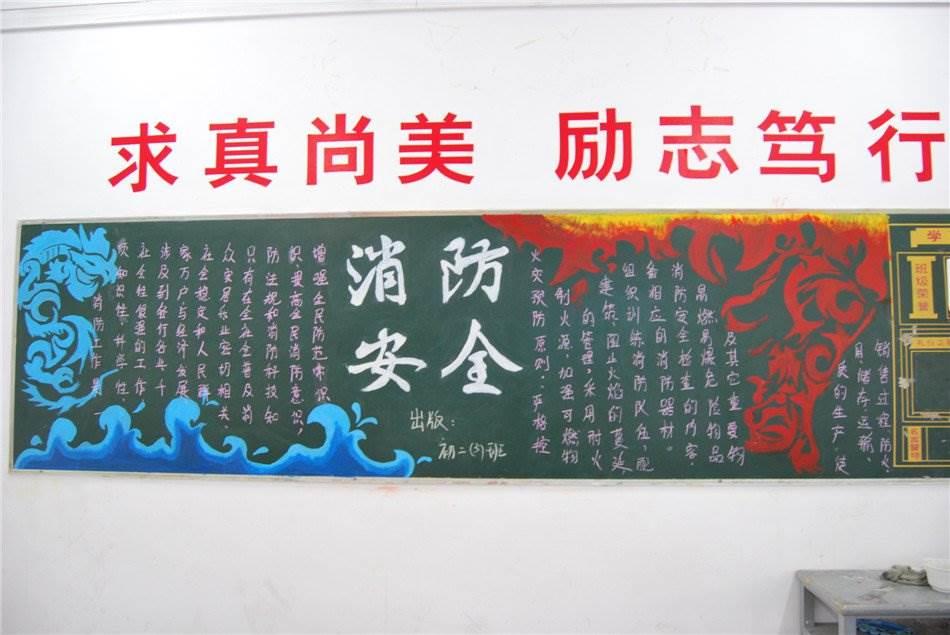 求真尚美 励志笃行
消防安全
出版：
初二(3)班
消防工作是一
项知识性、科学性、
社会性很强的工作，
涉及到各行各业千
家万户，与经济发展
社会稳定和人民群
众安居乐业密切相关，
只有在全社会普及消
防法规和消防科技知
识，提高全民消防意识，
增强全民防范意识
火灾预防原则：严格控
制火源，加强可燃物
的管理，采用耐火
建筑，阻止火焰的蔓延
组织训练消防队伍，配
备相应的消防器材。
消防安全检查的内容：
易燃易爆危险物品
及其它重要物
质的生产、使
用、储存、运输、
销售过程防火
学
班级荣誉